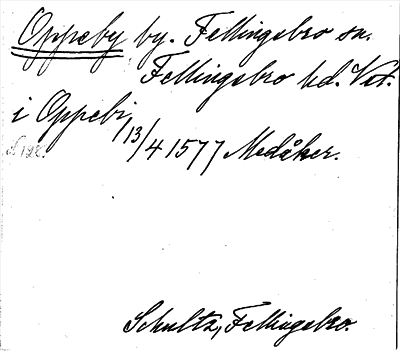 Oppeby by. Fellingsbro sn.
Fellingsbro hd. Vst.
i Oppebi, 13/4 1577 Medåker.
Schultz, Fellingsbro.